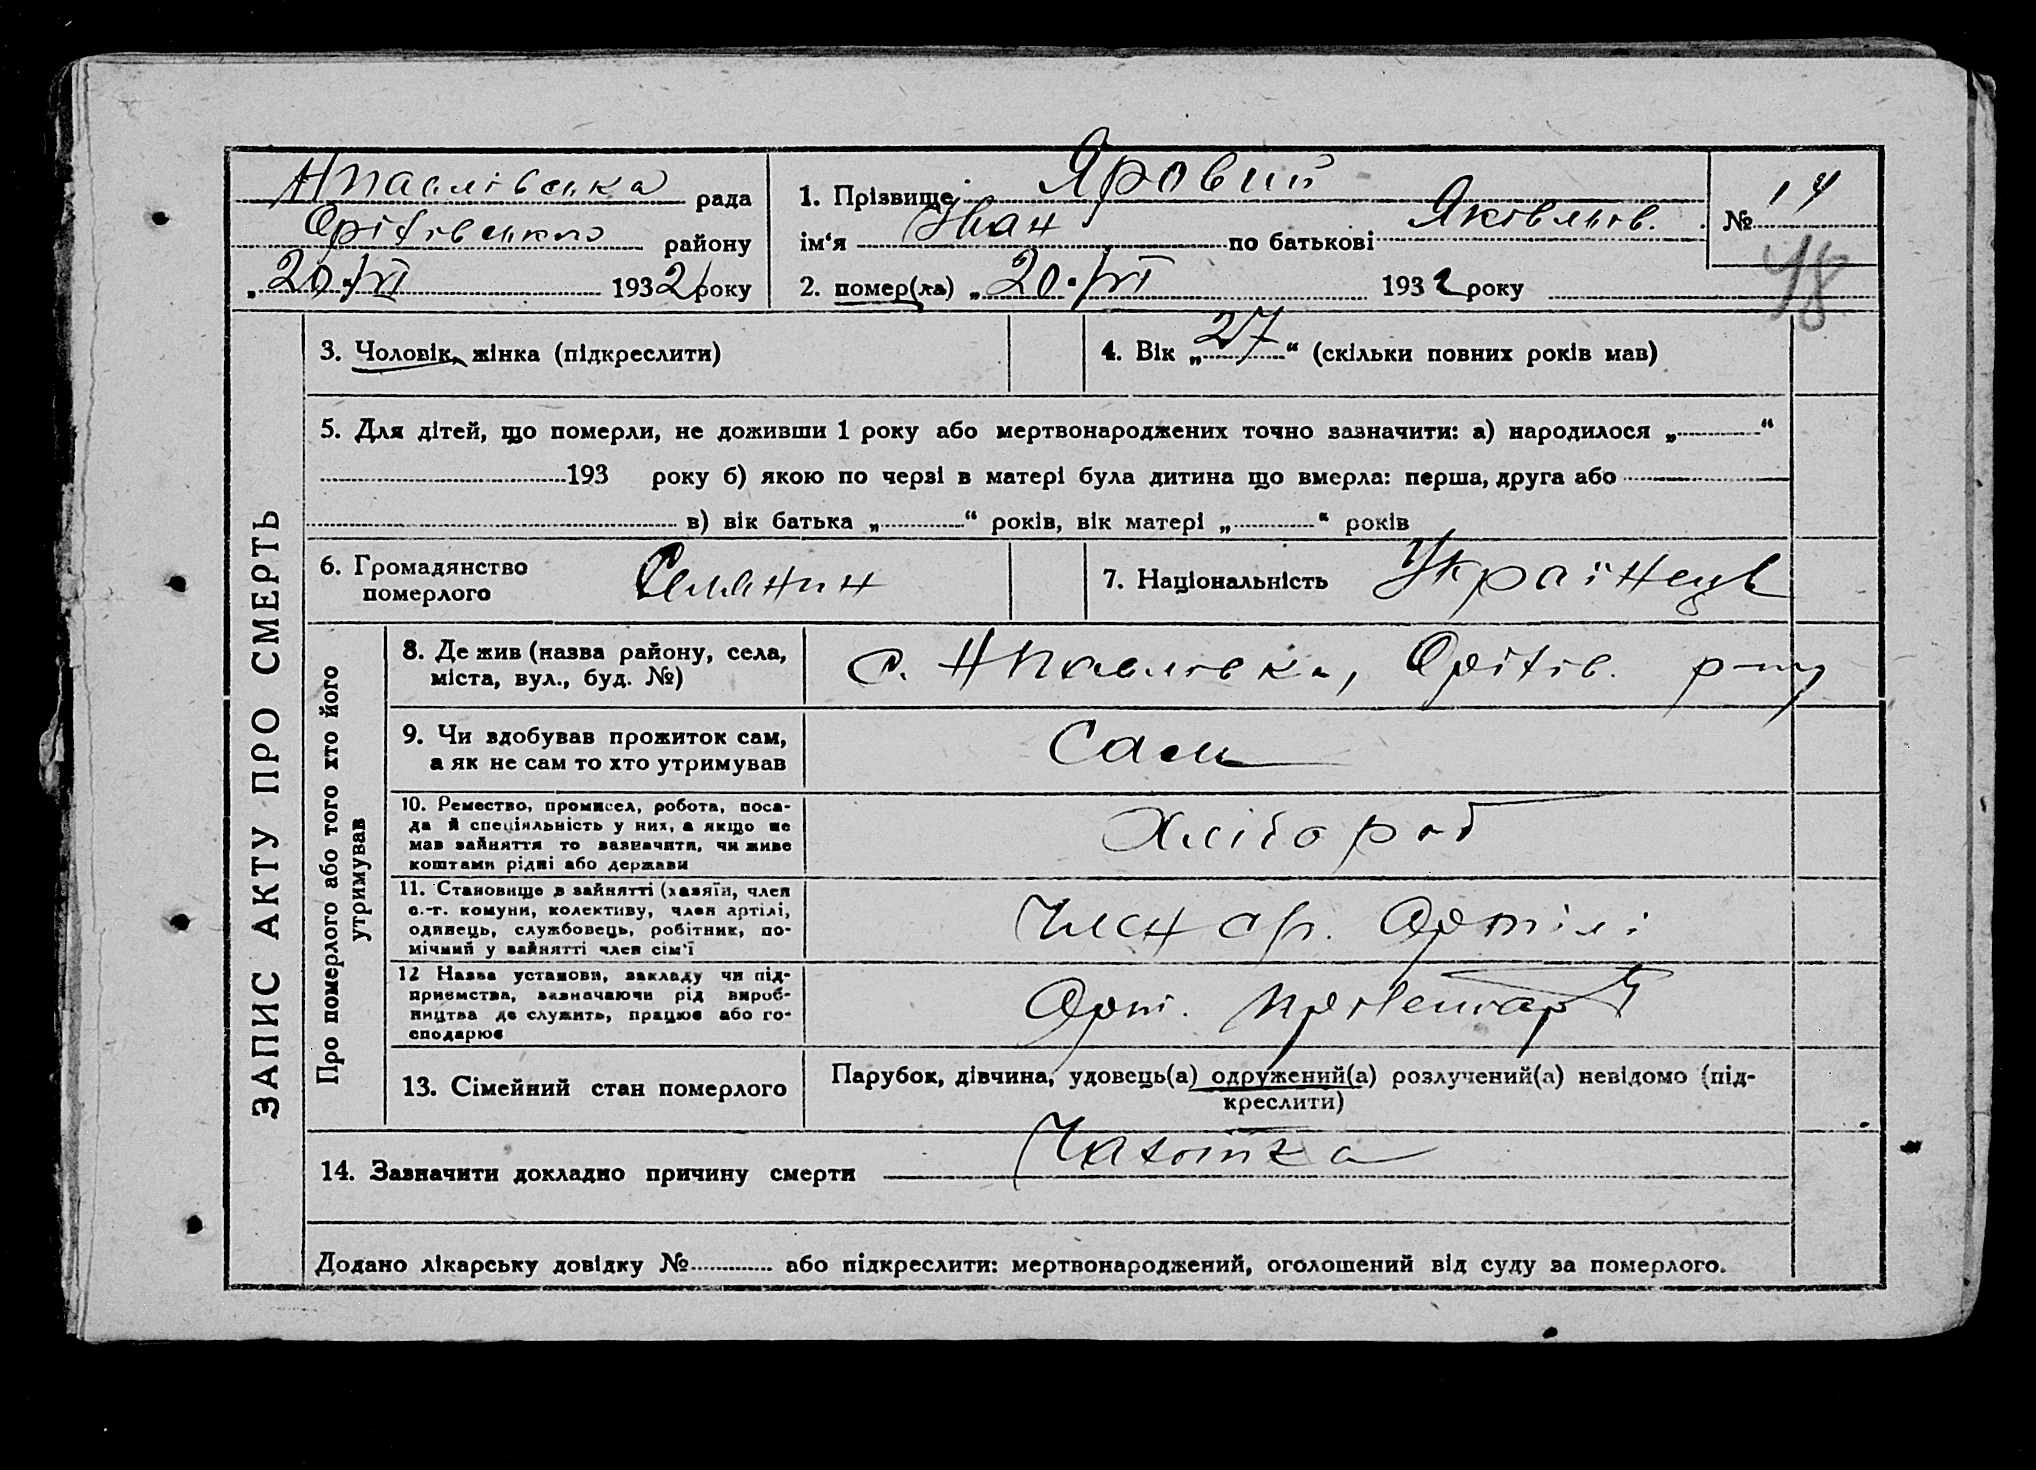 Нпавлівська рада
Оріхівського району
„20“/VI 1932 року
1. Прізвище Яровий
ім‘я Іван по батькові Яковлів.
2. помер(ла) „20“/VI 1932 року
№ 14
48
ЗАПИС АКТУ ПРО СМЕРТЬ
3. Чоловік, жінка (підкреслити)
4. Вік „27“ (скільки повних років мав)
5. Для дітей, що померли, не доживши 1 року або мертвонароджених точно зазначити: а) народилося „ “
193 року б) якою по черзі в матері була дитина що вмерла: перша, друга або
в) вік батька „ “ років, вік матері „ “ років
6. Громадянство
померлого
Селянин
7. Національність Українець
Про померлого або того хто його
утримував
8. Де жив (назва району, села,
міста, вул., буд. №)
с. Нпавловка, Оріхів. р-ну
9. Чи здобував прожиток сам,
а як не сам то хто утримував
Сам
10. Ремество, промисел, робота, поса-
да й спеціяльність у них, а якщо не
мав зайняття то зазначити, чи живе
коштами рідні або держави
Хлібороб
11. Становище в зайнятті (хазяїн, член
с.-г. комуни, колективу, член артілі,
одинець, службовець, робітник, по-
мічний у зайнятті член сім‘ї
Член ср. Артілі
12 Назва установи, закладу чи під-
приємства, зазначаючи рід вироб-
ництва де служить, працює або го-
сподарює
Арт. Пролетар
13. Сімейний стан померлого
Парубок, дівчина, удовець(а) одружений(а) розлучений(а) невідомо (під-
креслити)
14. Зазначити докладно причину смерти Чахотка
Додано лікарську довідку № або підкреслити: мертвонароджений, оголошений від суду за померлого.